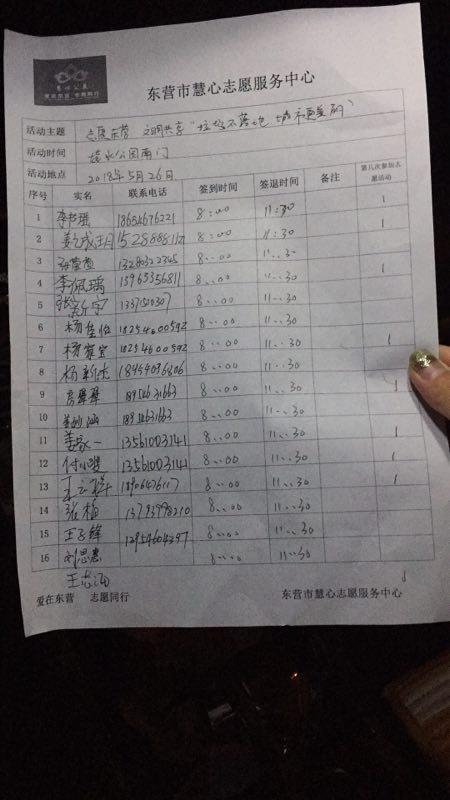 东营市慧心志愿服务中心
活动主题 志愿东营 文明共享"垃圾不落地 城市更美丽"
活动时间 公园南门
活动地点 2018年5月26日
序号 实名 联系电话 签到时间 签退时间 备注 第几次参加志愿活动
1 李书瑶 18654676221 8:00 11:30 1
2 8:00 11:30 1
3 13280322345 8:00 11:30
4 李佩瑀 15965356811 8:00 11:30 1
5 8:00 11:30
6 杨佳怡 18254600592 8:00 11:30
7 杨宸宝 18254600592 8:00 11:30 1
8 杨新杰 18964096806 8:00 11:30
9 房翠翠 18954631663 8:00 11:30 1
10 18954631663 8:00 11:30
11 姜家一 13561003141 8:00 11:30 1
12 付小雙 13561003141 8:00 11:30 1
13 18906476117 8:00 11:30 1
14 张植 13793998210 8:00 11:30
15 王子锋 8:00 11:30
16 刘思惠 8:00 11:30
王志涵
爱在东营 志愿同行 东营市慧心志愿服务中心